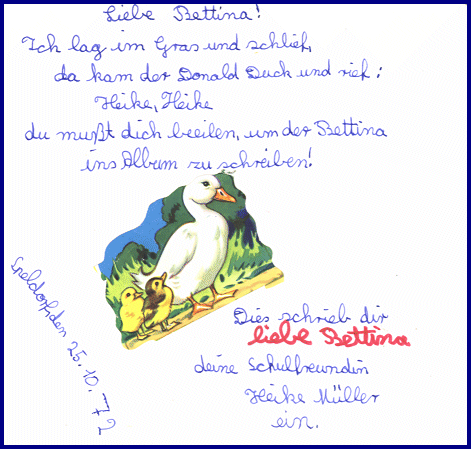 Liebe Bettina!
Ich lag im Gras und schlief,
da kam der Donald Duck und rief:
Heike, Heike
du mußt dich beeilen, um der Bettina
ins Album zu schreiben!
Dies schrieb dir
liebe Bettina
deine Schulfreundin
Heike Müller
ein.
den 25.10.72